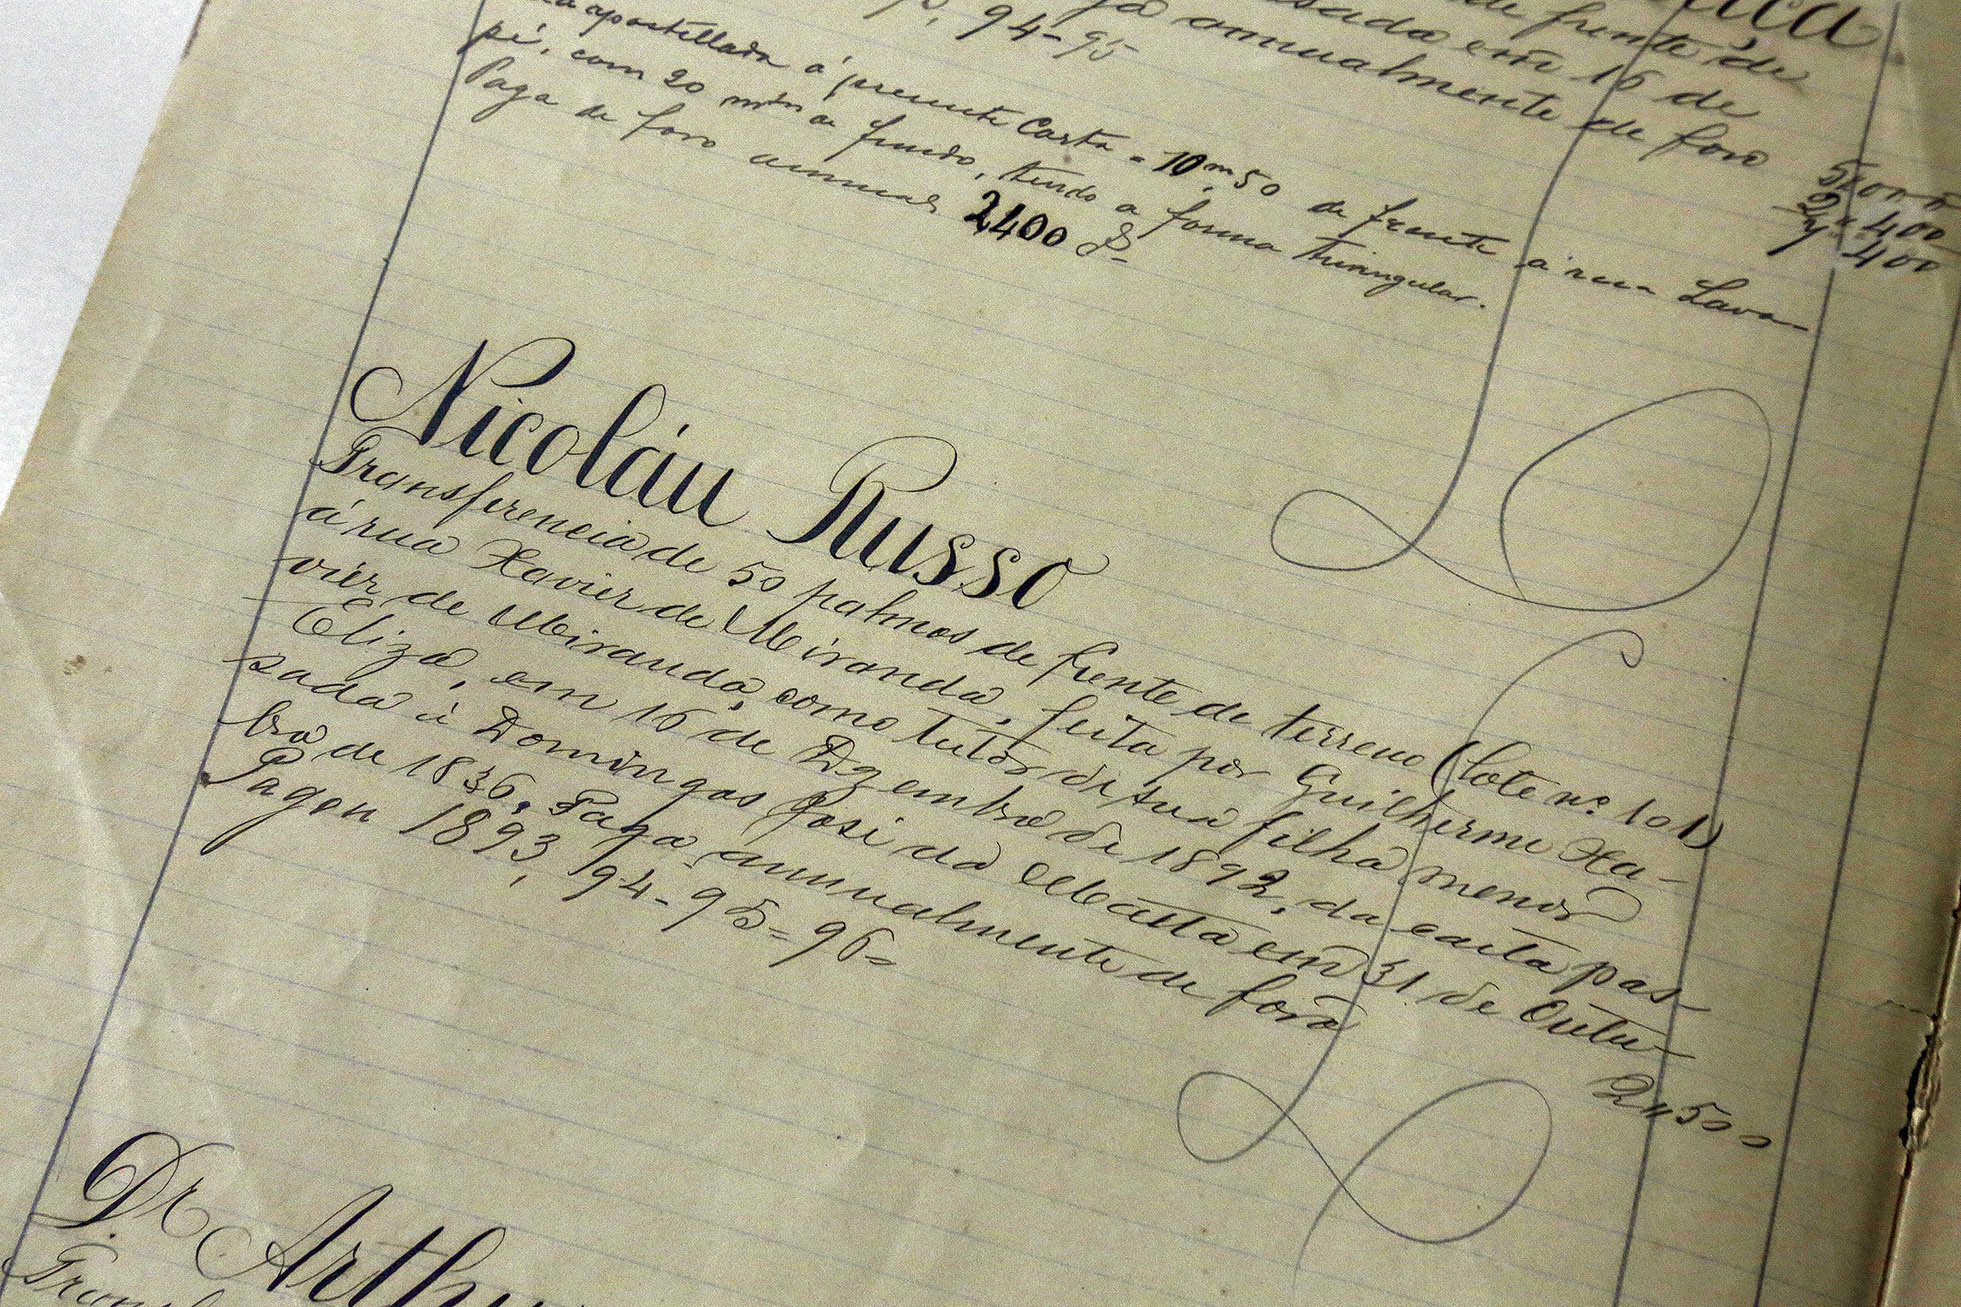 de frente de
passada em 16 de
já annualmente de foro
94-95
5000
2#400
7#400
apostillada á presente Carta = 10,m50 de frente á rua Lava-
pés, com 20 mts de fundo, tendo a forma triangular.
Paga de foro annual 2400 rs-
Nicoláu Russo
Transferencia de 50 palmos de frente de terreno (lote nº 101)
á rua Xavier de Miranda, feita por Guilherme Xa-
vier de Miranda, como tutor de sua filha menor
Eliza, em 16 de Dezembro de 1892, da carta pas-
sada á Domingos José da Matta em 31 de Outu-
bro de 1836. Paga annualmente de foro
2#500
Pagou 1893, 94-95=96=
Dr. Arthu